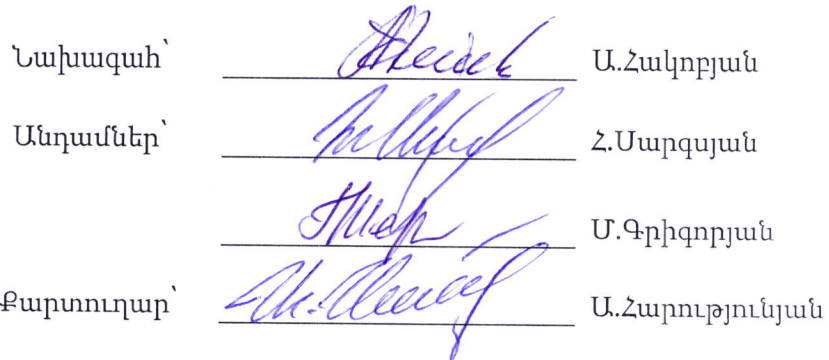 Նախագահ՝ Ա.Հակոբյան
Անդամներ՝ Հ.Սարգսյան
Մ.Գրիգորյան
Քարտուղար՝ Ա.Հարությունյան